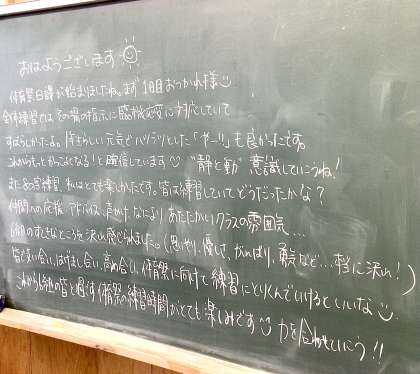 おはようございます
体育祭日課が始まりましたね。まず1日目おつかれ様
全体練習では その場の指示に臨機応変に対応していて
すばらしかったよ。1年生らしい 元気でハツラツとした「やー!!」も良かったです。
これからもっとかっこよくなる!と確信しています "静と動" 意識していこうね!
また 練習 私はとても楽しかったです。皆は練習していてどうだったかな?
仲間への応援 アドバイス 声かけ なにより あたたかいクラスの雰囲気...
のすてきなところを沢山感じられました。(思いやり、優しさ、がんばり、勇気など...本当に沢山!)
皆で い合い、はげまし合い、高め合い、体育祭に向けて練習にとりくんでいけるといいな
これから の皆と過ごす体育祭の練習時間がとても楽しみです 力を合わせていこう!!